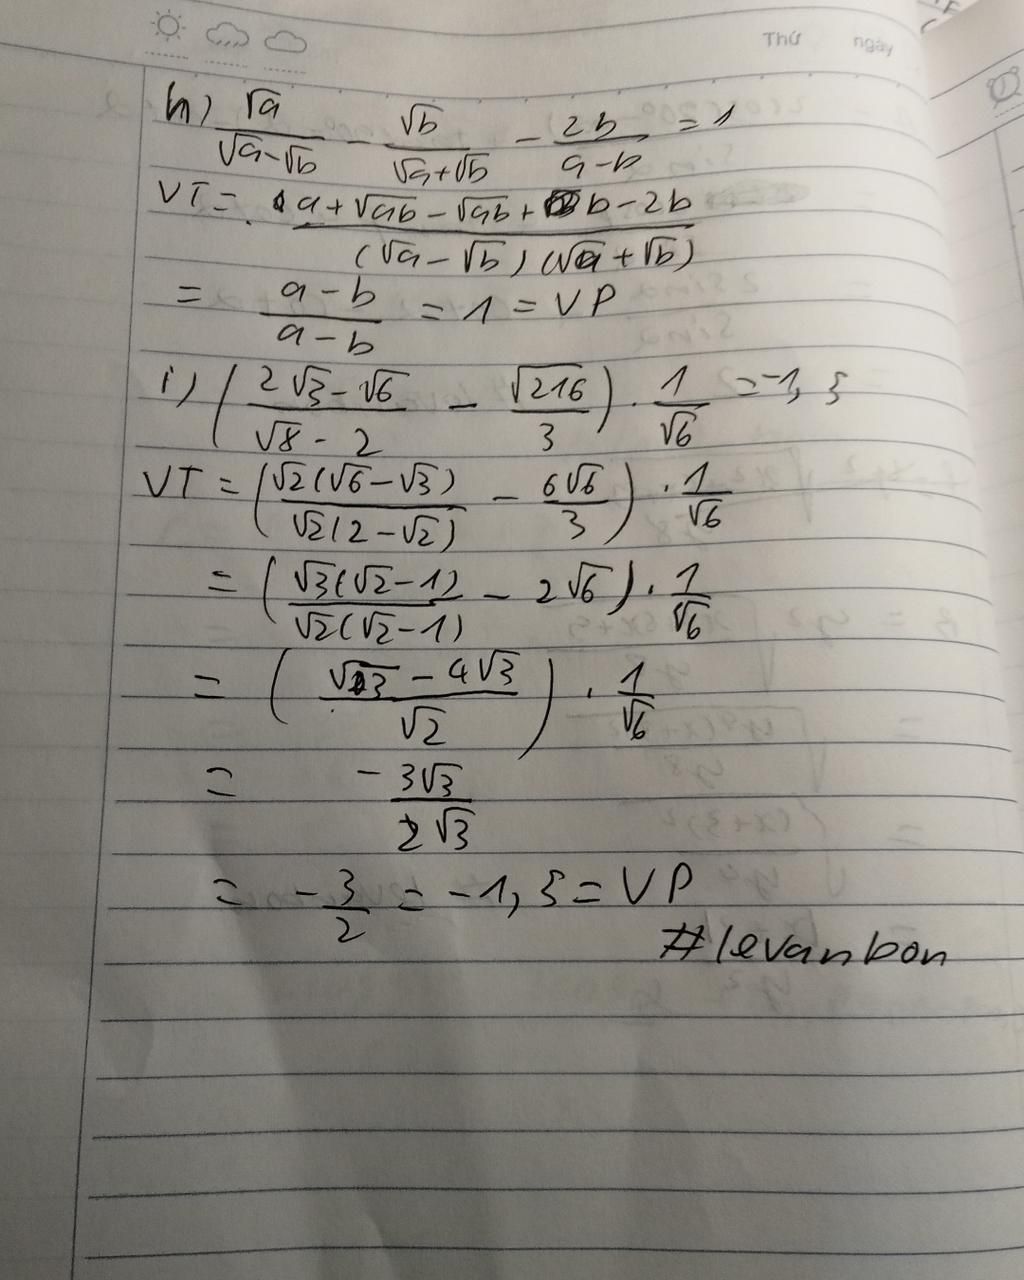 Thứ ngày
h) √a/(√a-√b) - √b/(√a+√b) - 2b/(a-b) = 1
VT = (a+√ab-√ab+b-2b)/((√a-√b)(√a+√b))
= (a-b)/(a-b) = 1 = VP
i) ((2√3-√6)/(√8-2) - √216/3) . 1/√6 = -1,5
VT = (√2(√6-√3)/(√2(2-√2)) - 6√6/3) . 1/√6
= (√3(√2-1)/(√2(√2-1)) - 2√6) . 1/√6
= ((√3-4√3)/√2) . 1/√6
= -3√3/(2√3)
= -3/2 = -1,5 = VP
#levanbon